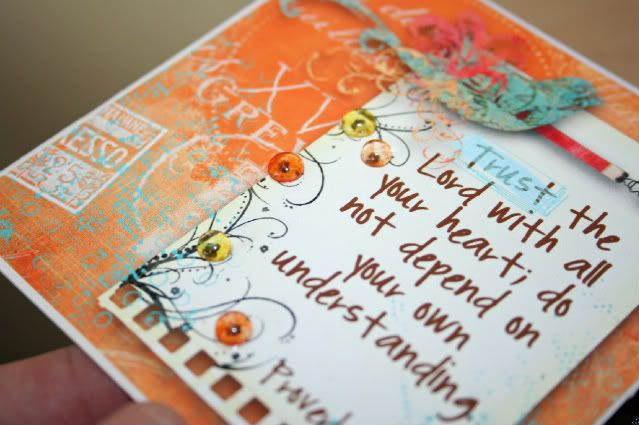 XV
GRE
ESSO
25
Trust the
Lord with all
your heart; do
not depend on
your own
understanding